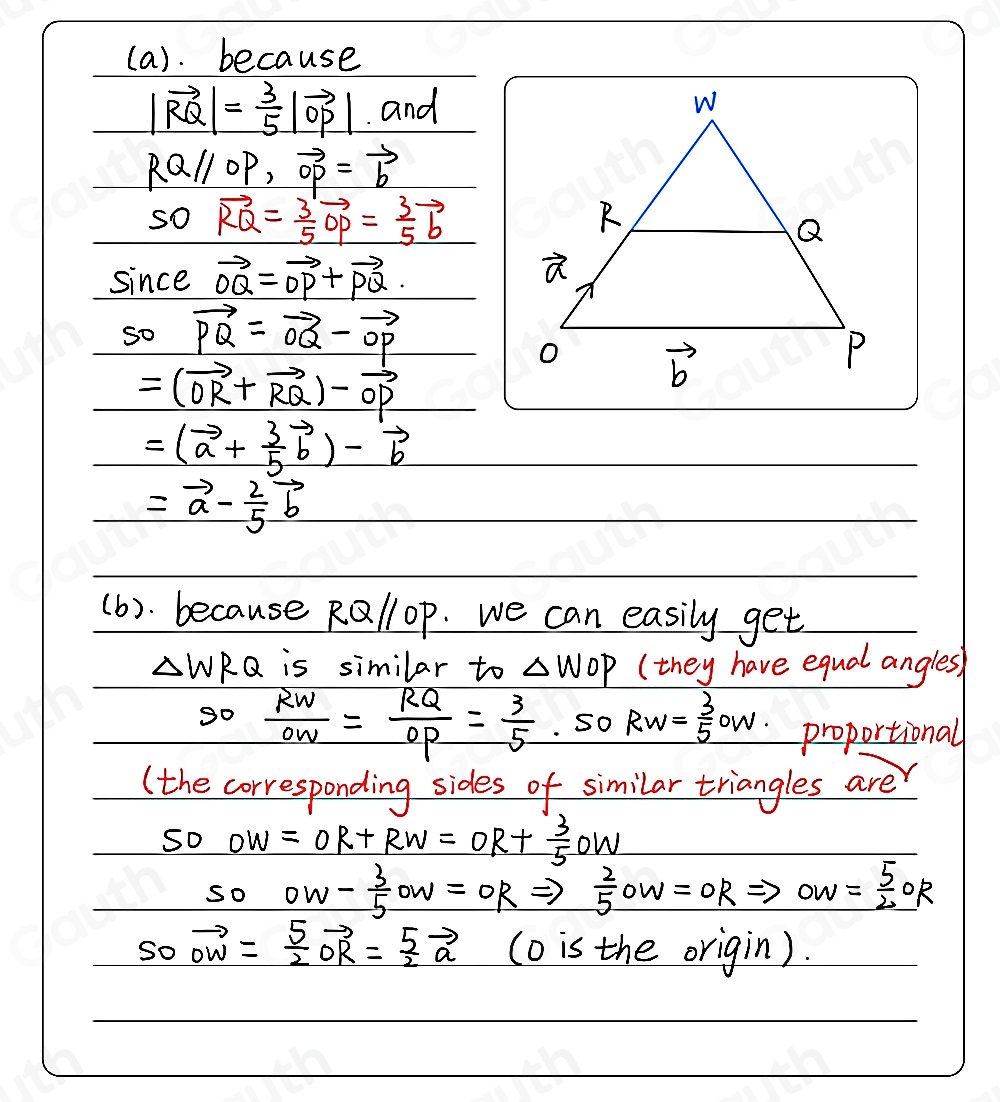 (a). because
|RQ⃗| = 3/5 |OP⃗|. and
RQ // OP, OP⃗ = b⃗
so RQ⃗ = 3/5 OP⃗ = 3/5 b⃗
since OQ⃗ = OP⃗ + PQ⃗.
so PQ⃗ = OQ⃗ - OP⃗
= (OR⃗ + RQ⃗) - OP⃗
= (a⃗ + 3/5 b⃗) - b⃗
= a⃗ - 2/5 b⃗
W
R
Q
a⃗
O
b⃗
P
(b). because RQ // OP. we can easily get
△WRQ is similar to △WOP (they have equal angles)
so RW/OW = RQ/OP = 3/5. so RW = 3/5 OW.
proportional
(the corresponding sides of similar triangles are
so OW = OR + RW = OR + 3/5 OW
so OW - 3/5 OW = OR ⇒ 2/5 OW = OR ⇒ OW = 5/2 OR
so OW⃗ = 5/2 OR⃗ = 5/2 a⃗ (O is the origin).
Gauth